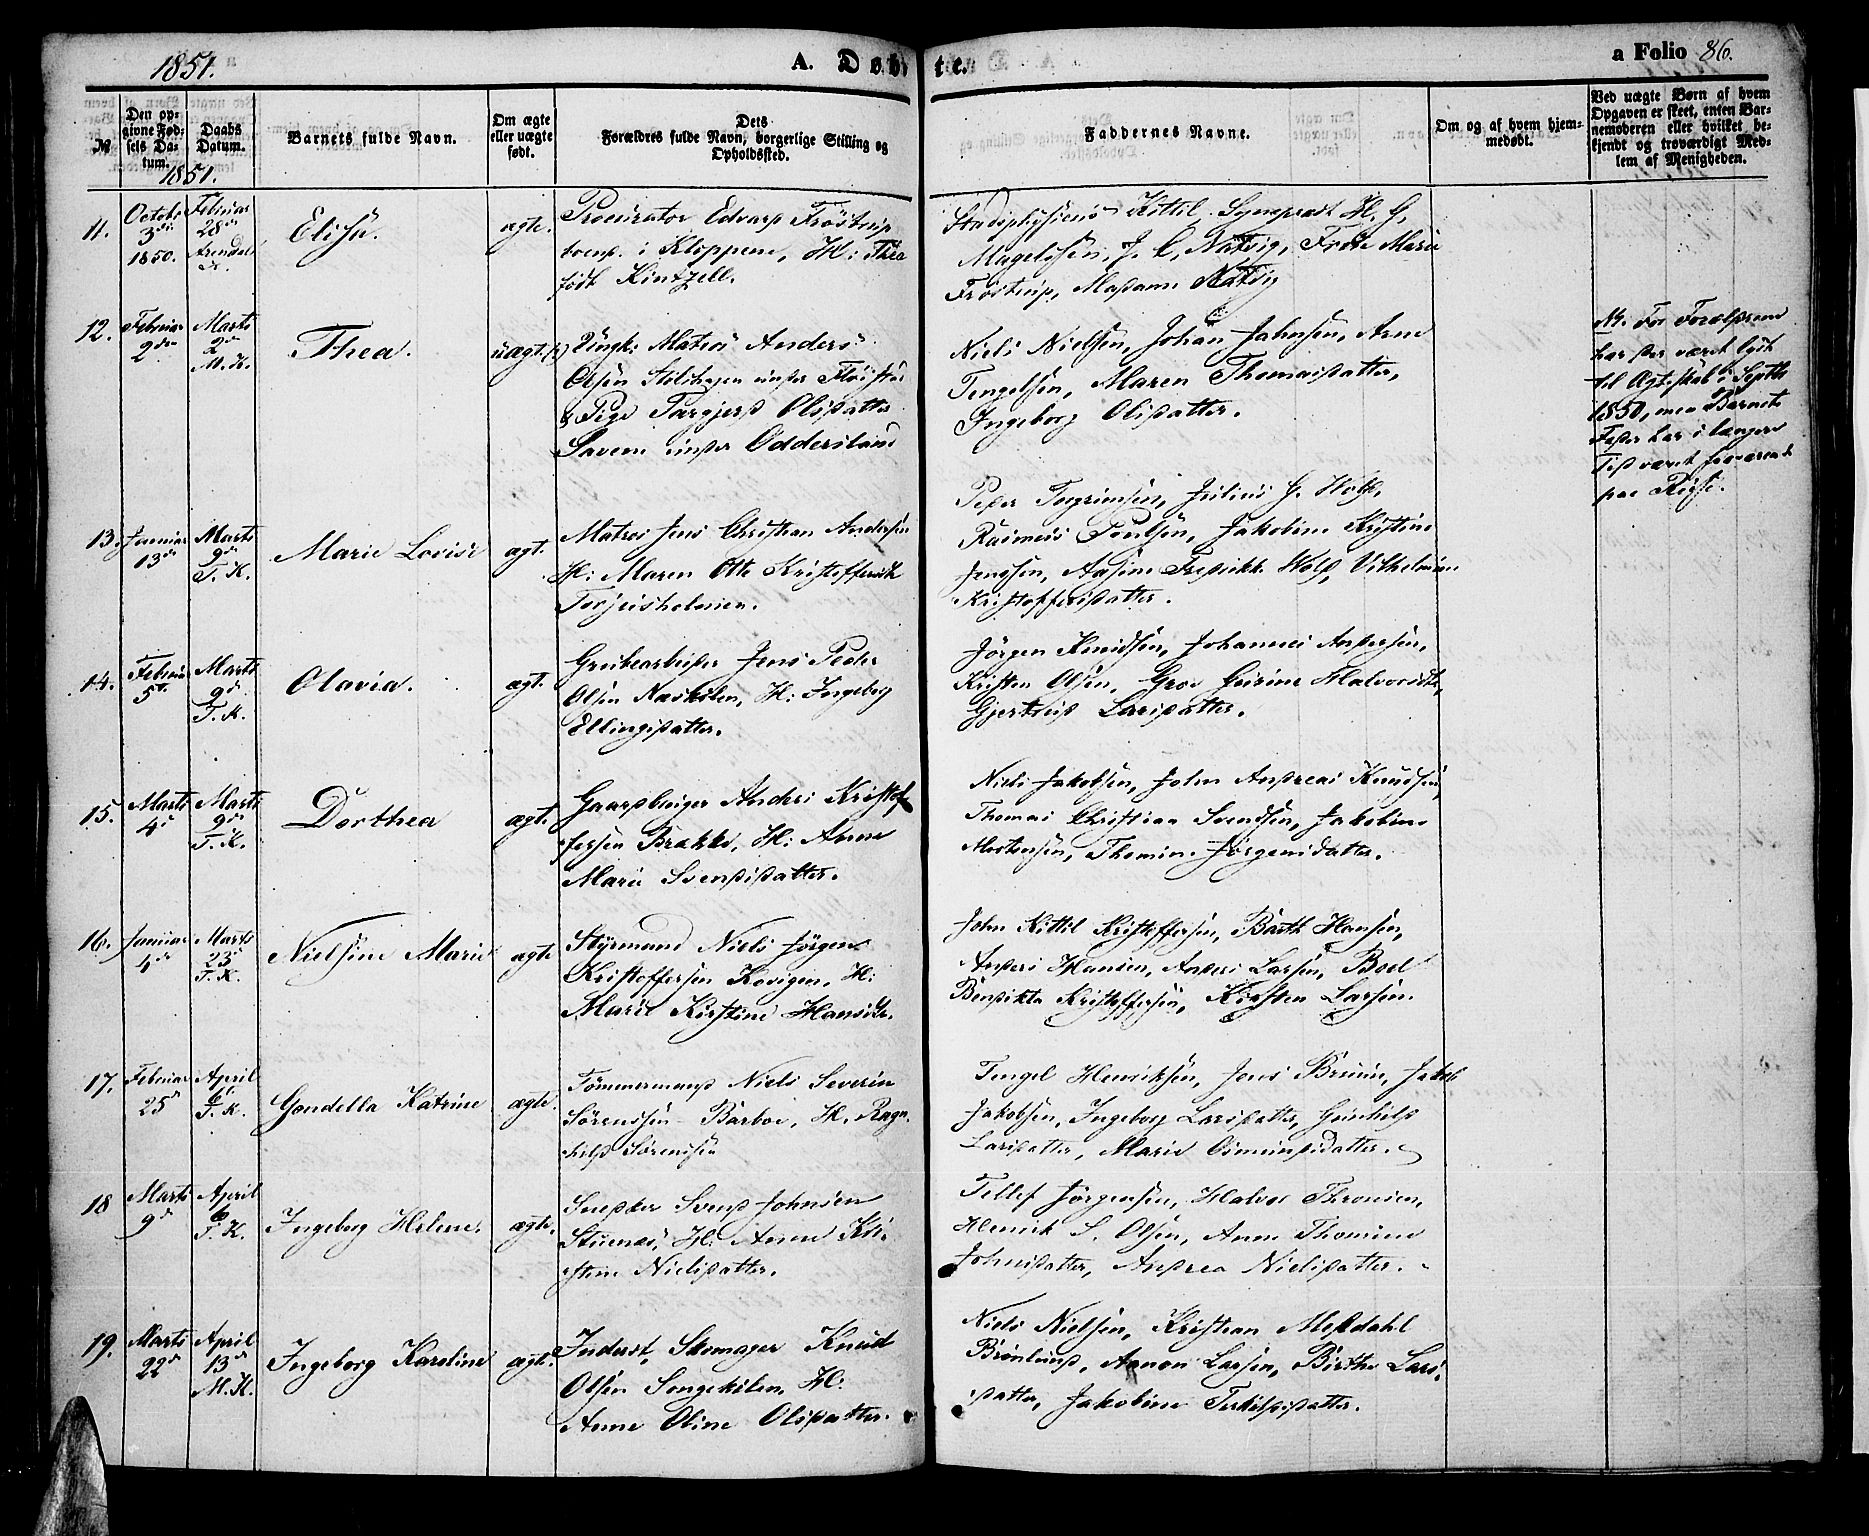 1851.
A. Døbte.
a Folio 86.
№
Den op-
givne Fød-
sels Da-
tum.
Daabs
Datum.
Barnets fulde Navn.
Om ægte
eller uægte
født.
Dets
Forældres fulde Navn, borgerlige Stilling og
Opholdssted.
Faddernes Navne.
Om og af hvem hjem-
medøbt.
Ved uægte Børn af hvem
Opgaven er skeet, enten Bar-
nemoderen eller hvilket be-
kjendt og troværdigt Med-
lem af Menigheden.
1851.
11.
Octobr
3die
1850.
Februar
28de
Arendals
K.
Elisa.
ægte.
Procurator Edvard Frøstrup
boend. i Kloppene, H: Thea
født Kintzell.
Stadsphysicus Kittil. Sognepræst H. G.
Magelssen, J. C. Natvig, Frøken Marie
Frøstrup, Madame Natvig
12.
Februar
2den
Marts
2de
M. K.
Thea.
uægte
Ungk: Matros Anders
Olsen Stølshagen under Fløistø
& Pige Torgjerd Olsdatter
Saven under Oddersland
Niels Nielsen, Johan Jahnsen, Arne
Tengelsen, Maren Thomasdatter,
Ingeborg Olsdatter.
N. For Forældrene
har der været lyst
til Ægteskab i Septbr
1850, men Barnets
Fader har i længere
Tid været fraværende
paa Reise.
13.
Januar
13de
Marts
9de
T. K.
Marie Lovise
ægt.
Matros Jens Christian Andersen
H: Maren Otte Kristoffersdtr
Torjusholmen.
Peder Torgrimsen, Julius J. Wolf,
Rasmus Poulsen, Jakobine Kristine
Jenssen, Aasine Fredrikke Wolf, Vilhelmine
Kristoffersdatter.
14.
Februar
5te
Marts
9de
T. K.
Olavia.
ægt.
Grubearbeider Jens Peder
Olsen Naskilen, H: Ingeborg
Ellingsdatter.
Jørgen Knudsen, Johannes Andersen,
Kristen Olsen, Groe Gurine Halvorsdtr,
Gjertrud Larsdatter.
15.
Marts
4de
Marts
9de
T. K.
Dorthea
ægt.
Gaardbruger Anders Kristof
fersen Brække, H: Anne
Marie Svendsdatter.
Niels Jakobsen, John Andreas Knudsen,
Thomas Christian Svendsen, Jakobine
Mortensen, Thomine Jørgensdatter.
16.
Januar
4de
Marts
23de
T. K.
Nielsine Marie
ægte
Styrmand Niels Jørgen
Kristoffersen Kovigen, H:
Marie Kirstine Hansdtr.
John Kittil Kristoffersen, Barth Hansen,
Anders Hansen, Anders Larsen, Boel
Bendikta Kristoffersen, Kirsten Larsen.
17.
Februar
25de
April
6te
T. K.
Gondella Katrine
ægte.
Tømmermand Niels Severin
Sørenssen Barboe, H. Ragn
hild Sørenssen
Tengel Henriksen, Jens Bruun, Jakob
Jakobsen, Ingeborg Larsdatter, Gunhild
Larsdatter, Marie Osmundsdatter.
18
Marts
9de
April
6
T. K.
Ingeborg Helene.
ægte.
Snedker Svend Johnsen
Stuenæs, H: Anne Kri-
stine Nielsdatter.
Tellef Jørgensen, Halvor Thronsen,
Henrik S. Olsen, Anne Thomine
Johnsdatter, Andrea Nielsdatter.
19.
Marts
22de
April
13de
M. K.
Ingeborg Karoline
ægt.
Inderst, Skomager Knud
Olsen Songekilen, H:
Anne Oline Olsdatter.
Niels Nielsen, Kristian Mekdahl
Brønlund, Aanon Larsen, Birthe Lars-
datter, Jakobine Terkelsdatter.